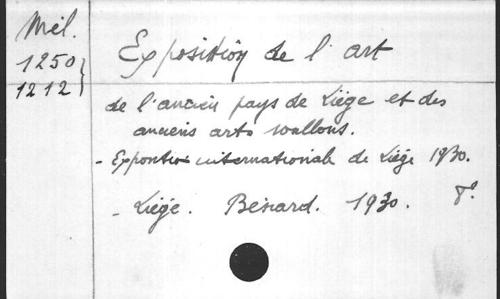 Mél.
1250
1212}
Exposition de l'art
de l'ancien pays de Liège et des
anciens arts wallons.
- Exposition internationale de Liège 1930.
- Liège. Bénard. 1930. 8°.